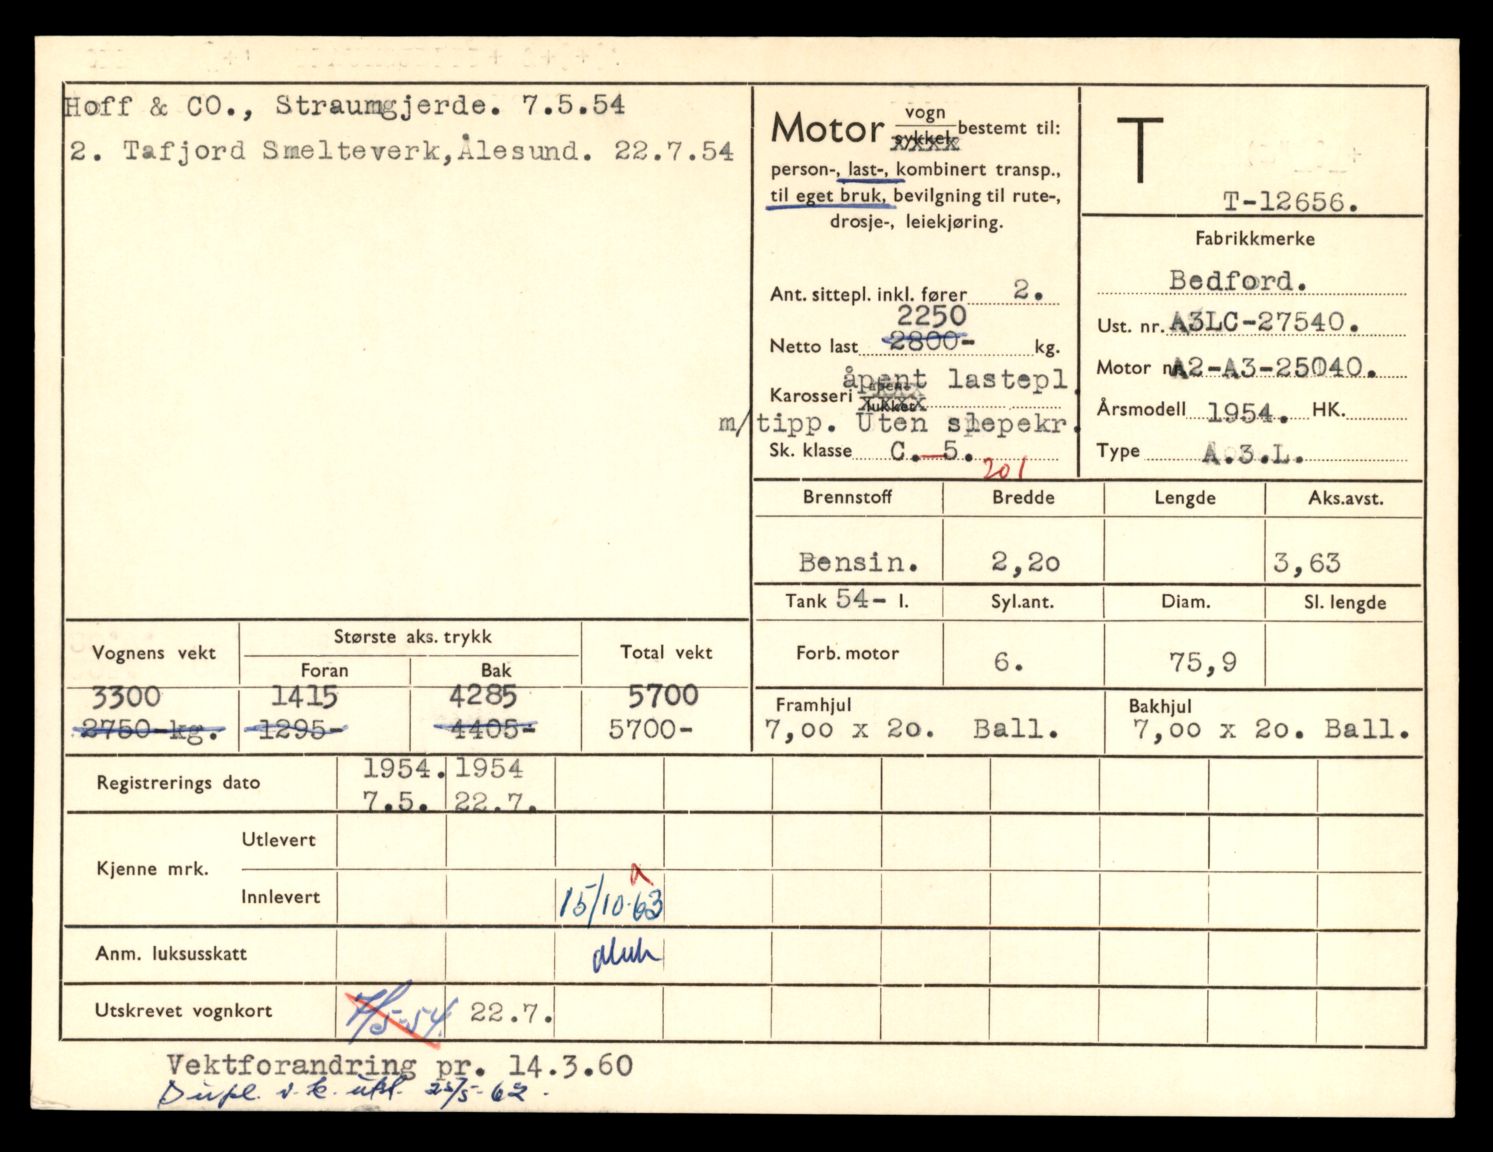 Hoff & CO., Straumgjerde. 7.5.54
2. Tafjord Smelteverk, Ålesund. 22.7.54
Motor vogn sykkel bestemt til:
person-, last-, kombinert transp.,
til eget bruk, bevilgning til rute-,
drosje-, leiekjøring.
Ant. sittepl. inkl. fører 2.
2250
Netto last 2800- kg.
åpent lastepl.
Karosseri åpent lukket
m/tipp. Uten slepekr.
Sk. klasse C. 5.
201
T
T-12656.
Fabrikkmerke
Bedford.
Ust. nr. A3LC-27540.
Motor nr. A2-A3-25040.
Årsmodell 1954. HK.
Type A.3.L.
Brennstoff Bredde Lengde Aks.avst.
Bensin. 2,20 3,63
Tank 54- l. Syl.ant. Diam. Sl. lengde
Forb. motor 6. 75,9
Framhjul Bakhjul
7,00 x 20. Ball. 7,00 x 20. Ball.
Vognens vekt Største aks. trykk Total vekt
Foran Bak
3300 1415 4285 5700
2750 kg. 1295- 4405- 5700-
Registrerings dato 1954. 1954
7.5. 22.7.
Kjenne mrk. Utlevert
Innlevert 15/10-63
Anm. luksusskatt
Utskrevet vognkort 7/5-54 22.7.
Vektforandring pr. 14.3.60
Dupl. v.k. utl. 25/5-62.